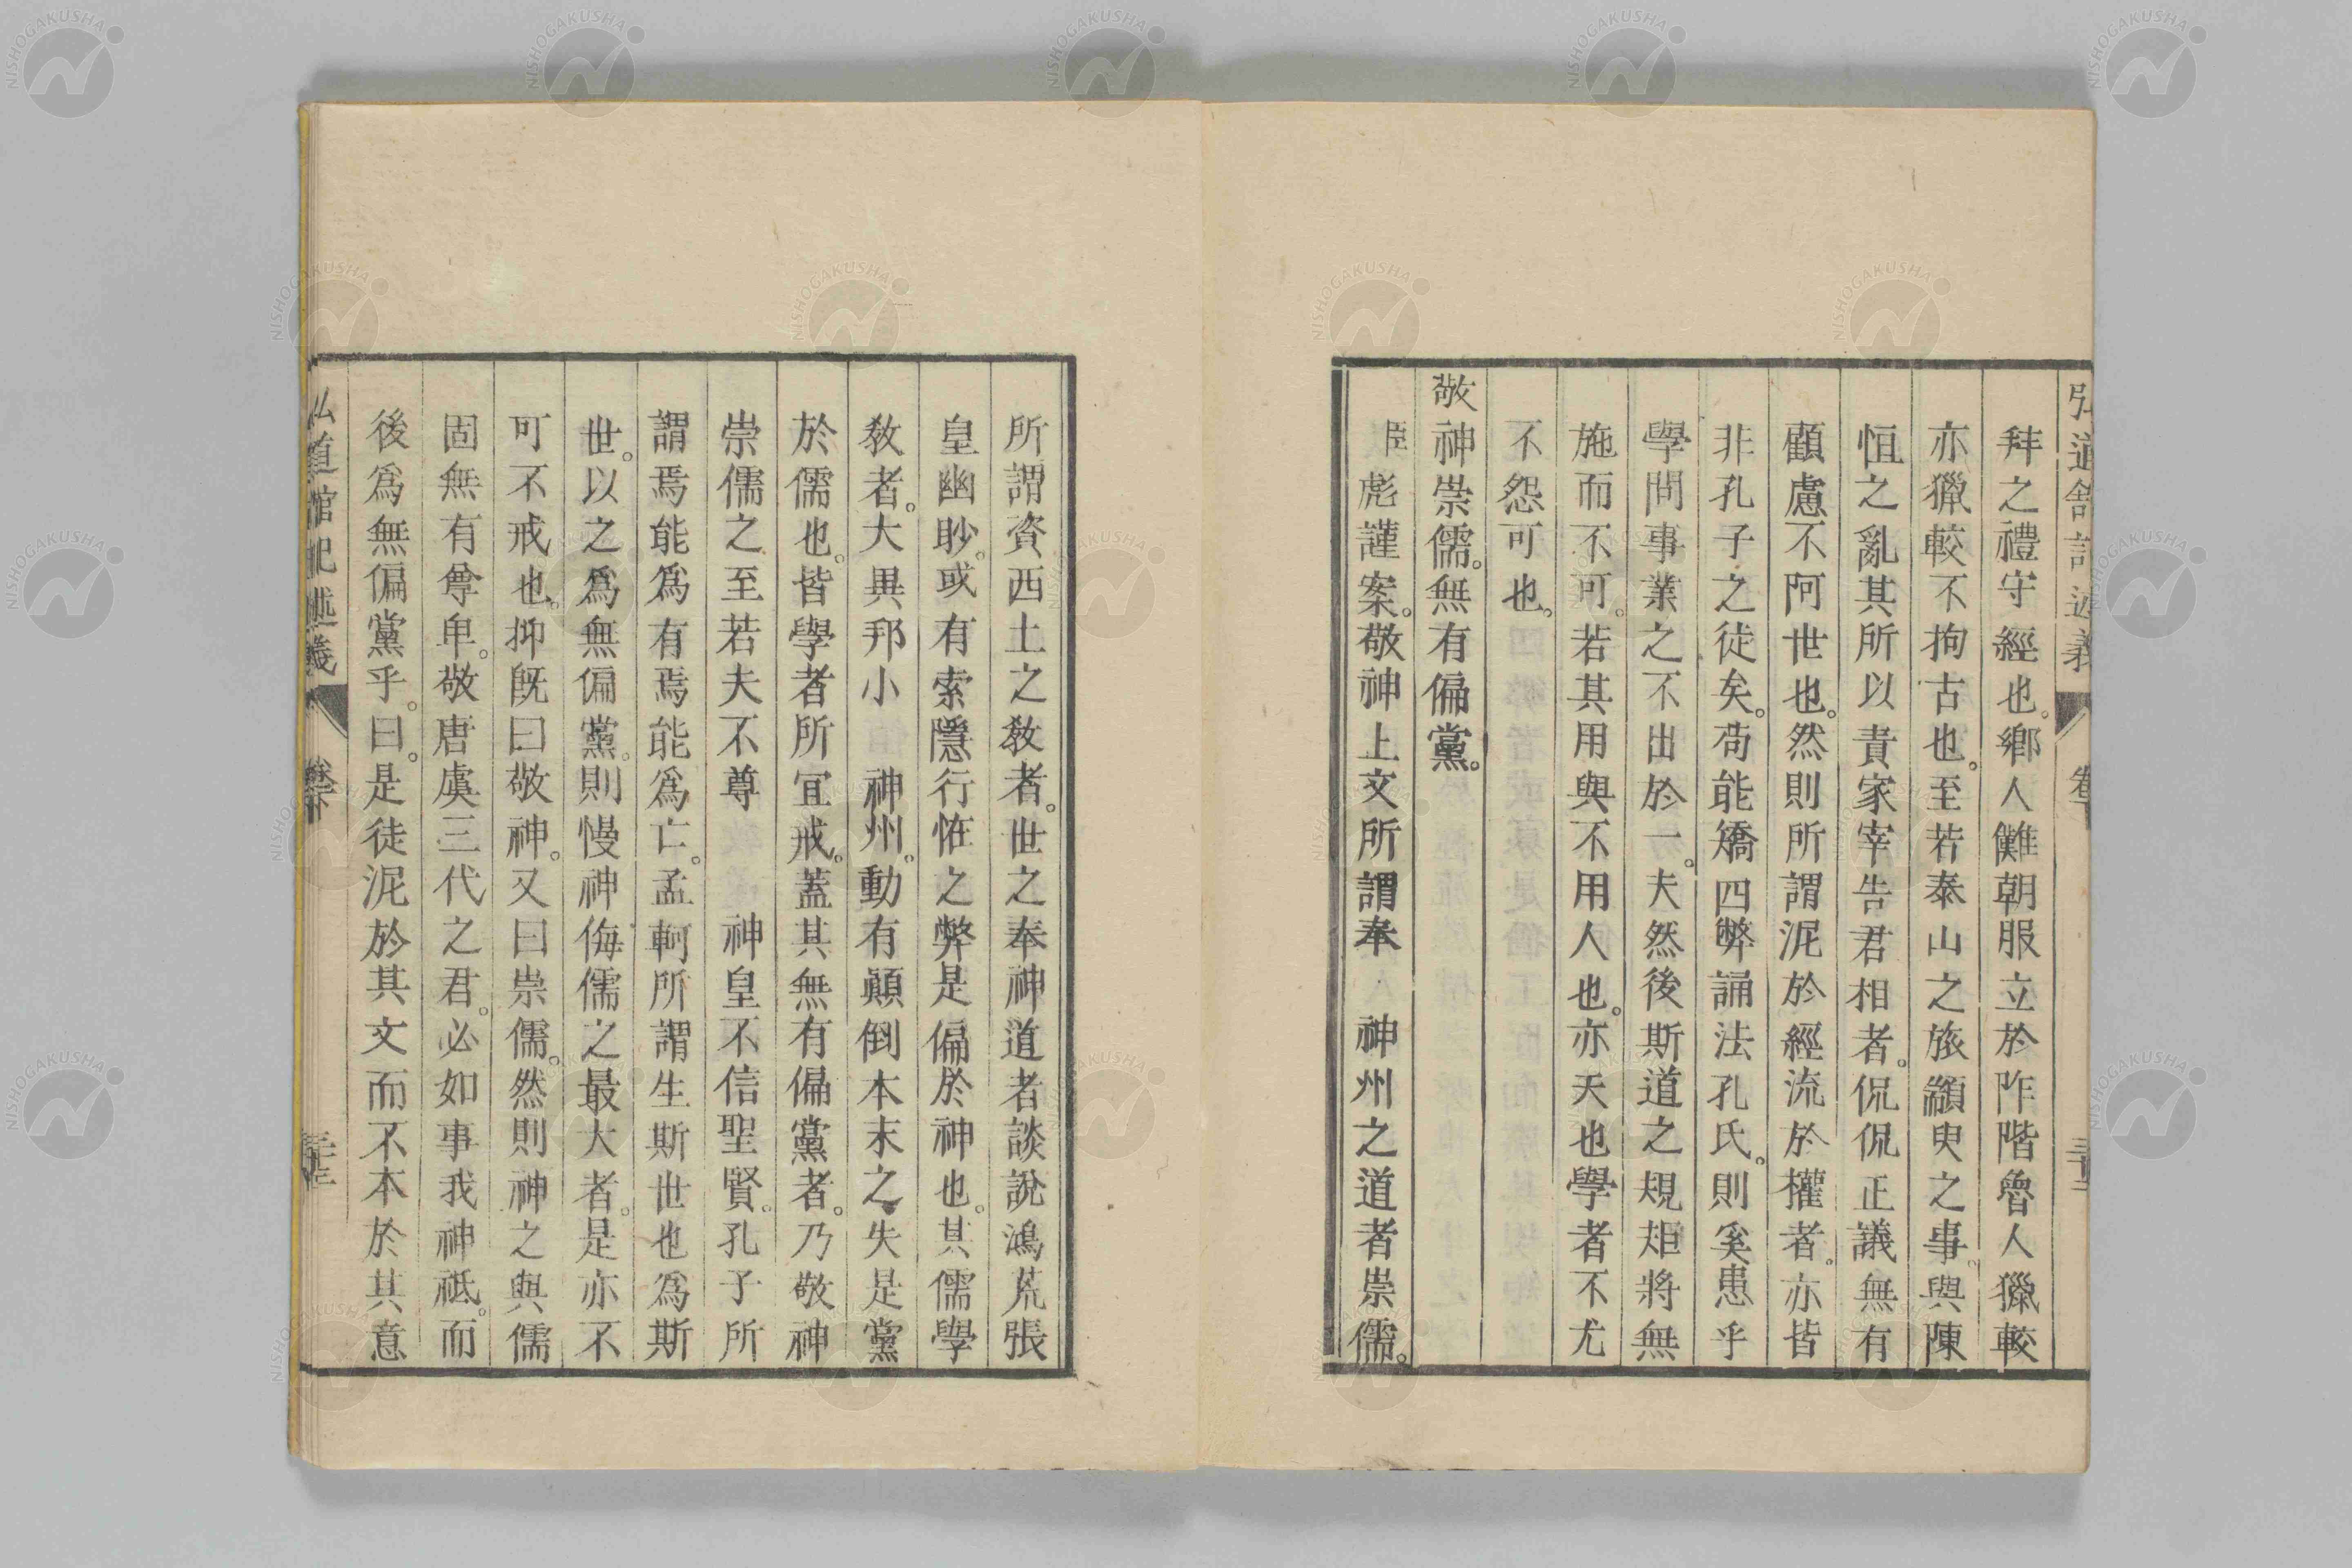 弘道館記述義 卷下
拜之禮守經也。鄉人儺朝服立於阼階魯人獵較
亦獵較不拘古也。至若泰山之旅顓臾之事。與陳
恒之亂其所以責家宰告君相者。侃侃正議無有
顧慮不阿世也。然則所謂泥於經流於權者。亦皆
非孔子之徒矣。苟能矯四弊誦法孔氏。則奚患乎
學問事業之不出於一。夫然後斯道之規矩將無
施而不可。若其用與不用人也。亦天也學者不尤
不怨可也。
敬神崇儒。無有偏黨。
臣彪謹案。敬神上文所謂奉 神州之道者崇儒。
所謂資西土之教者。世之奉神道者談說鴻荒張
皇幽眇。或有索隱行怪之弊是偏於神也。其儒學
教者。大異邦小 神州。動有顚倒本末之失是黨
於儒也。皆學者所宜戒。蓋其無有偏黨者。乃敬神
崇儒之至若夫不尊 神皇不信聖賢。孔子所
謂焉能爲有焉能爲亡。孟軻所謂生斯世也爲斯
世。以之爲無偏黨。則慢神侮儒之最大者。是亦不
可不戒也。抑既曰敬神。又曰崇儒。然則神之與儒
固無有尊卑。敬唐虞三代之君。必如事我神祇。而
後爲無偏黨乎。曰。是徒泥於其文而不本於其意
弘道館記述義 卷下
NISHOGAKUSHA